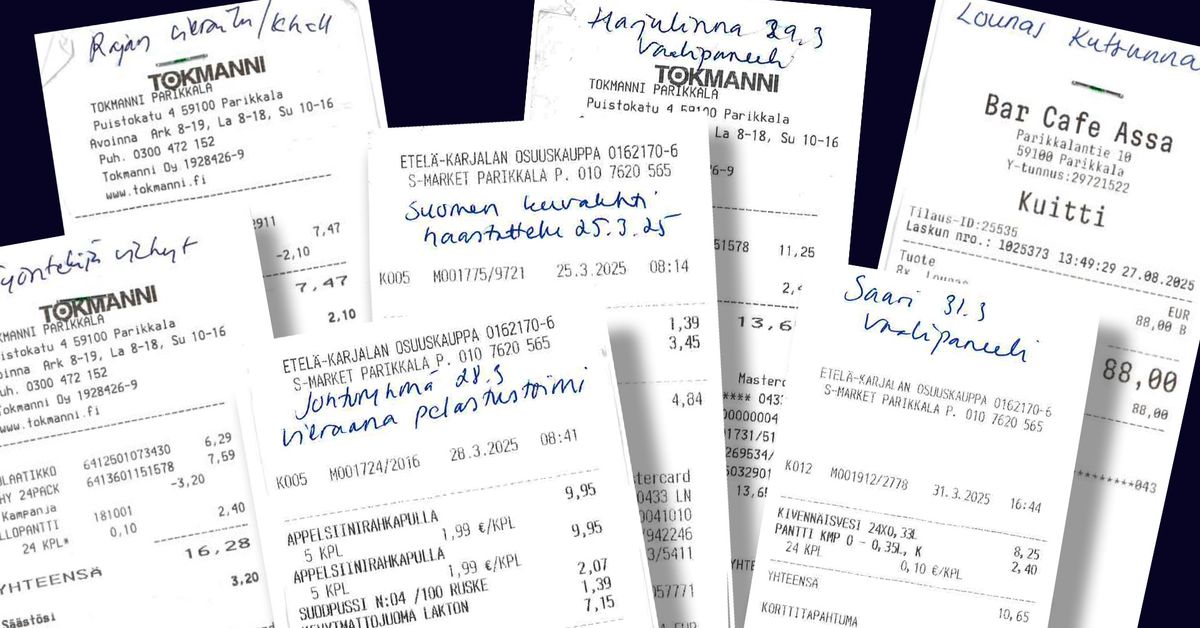 Rajan vierailu/
TOKMANNI
TOKMANNI PARIKKALA
Puistokatu 4 59100 Parikkala
Avoinna Ark 8-19, La 8-18, Su 10-16
Puh. 0300 472 152
Tokmanni Oy 1928426-9
www.tokmanni.fi
2911 7,47
-2,10
7,47
2,10
Harjulinna 29.3
Vaalipaneeli
TOKMANNI
TOKMANNI PARIKKALA
Puistokatu 4 59100 Parikkala
La 8-18, Su 10-16
6-9
51578 11,25
2,4
13,6
Masterc
**** 043
00000004
01731/51
269534/
5032901
13,65
YHTE
Lounas Kutsunna
Bar Cafe Assa
Parikkalantie 10
59100 Parikkala
Y-tunnus:29721522
Kuitti
Tilaus-ID:25535
Laskun nro.: 1025373 13:49:29 27.08.2025
Tuote
EUR
8x Lounas
88,00 B
88,00
88,00
*********043
ETELÄ-KARJALAN OSUUSKAUPPA 0162170-6
S-MARKET PARIKKALA P. 010 7620 565
Suomen kuvalehti
haastattelu 25.3.25
K005 M001775/9721 25.3.2025 08:14
1,39
3,45
4,84
tercard
0433 LN
0041010
7942246
3/5411
057771
EUR
Työntekijä
TOKMANNI
KMANNI PARIKKALA
istokatu 4 59100 Parikkala
oinna Ark 8-19, La 8-18, Su 10-16
uh. 0300 472 152
okmanni Oy 1928426-9
www.tokmanni.fi
ULAATIKKO 6412501073430 6,29
HY 24PACK 6413601151578 7,59
Kampanja -3,20
LLOPANTTI 181001
24 KPL* 0,10 2,40
YHTEENSÄ 16,28
Säästösi 3,20
ETELÄ-KARJALAN OSUUSKAUPPA 0162170-6
S-MARKET PARIKKALA P. 010 7620 565
Johtoryhmä 28.3
vieraana pelastustoimi
K005 M001724/2016 28.3.2025 08:41
APPELSIINIRAHKAPULLA 9,95
5 KPL 1,99 €/KPL
APPELSIINIRAHKAPULLA 9,95
5 KPL 1,99 €/KPL
SUODPUSSI N:04 /100 RUSKE 2,07
KEVYTMAITOJUOMA LAKTON 1,39
7,15
Saari 31.3
Vaalipaneeli
ETELÄ-KARJALAN OSUUSKAUPPA 0162170-6
S-MARKET PARIKKALA P. 010 7620 565
K012 M001912/2778 31.3.2025 16:44
KIVENNÄISVESI 24X0,33L 8,25
PANTTI KMP 0 - 0,35L, K 2,40
24 KPL 0,10 €/KPL
YHTEENSÄ 10,65
KORTTITAPAHTUMA